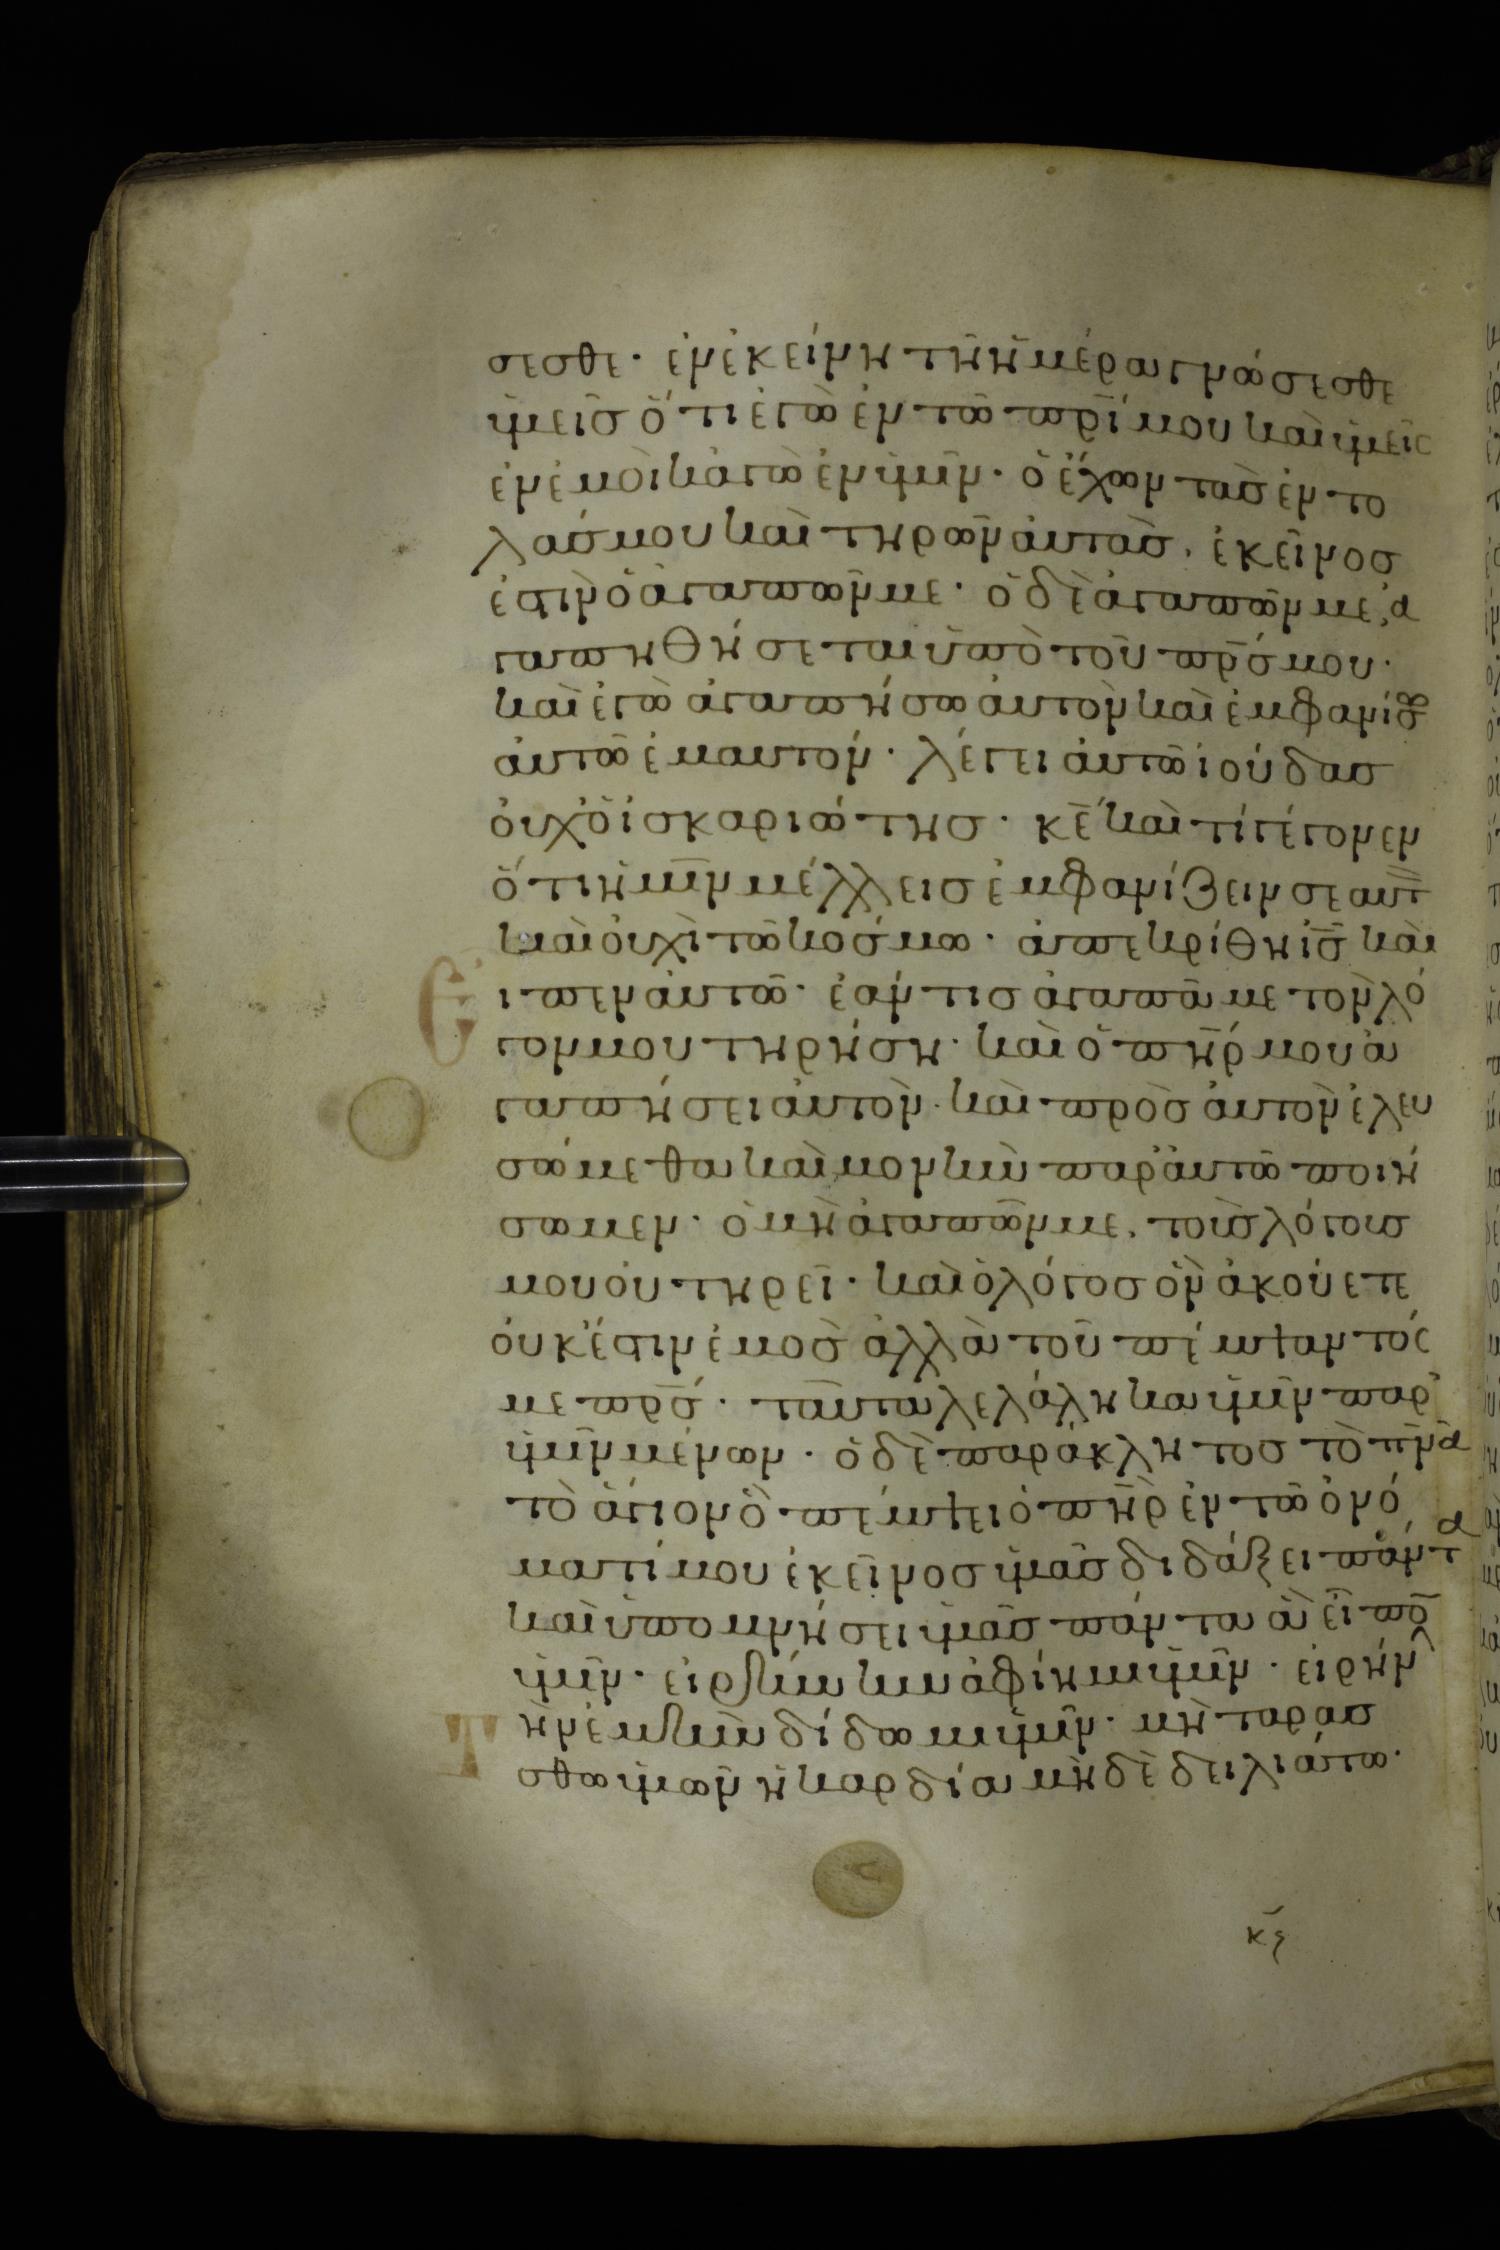 σεσθε· ἐν ἐκείνη τῆ ἡμέρα γνώσεσθε
ὑμεῖς ὅτι ἐγὼ ἐν τῶ π̅ρ̅ί μου καὶ ὑμεῖς
ἐν ἐμοὶ κἀγὼ ἐν ὑμῖν· ὁ ἔχων τὰς ἐντο
λάς μου καὶ τηρῶν αὐτὰς, ἐκεῖνος
ἐστιν ὁ ἀγαπῶν με· ὁ δὲ ἀγαπῶν με, ἀ
γαπηθήσεται ὑπὸ τοῦ π̅ρ̅ς μου·
καὶ ἐγὼ ἀγαπήσω αὐτὸν καὶ ἐμφανίσω
αὐτῶ ἐμαυτόν· λέγει αὐτῶ ἰούδας
οὐχ ὁ ἰσκαριώτης· κ̅ε̅ καὶ τί γέγονεν
ὅτι ἡμῖν μέλλεις ἐμφανίζειν σεαυτ
καὶ οὐχὶ τῶ κόσμω· ἀπεκρίθη ι̅ς̅ καὶ
ιπεν αὐτῶ· Ἐάν τις ἀγαπᾶ με τὸν λό
γον μου τηρήση· καὶ ὁ π̅η̅ρ μου ἀ
γαπήσει αὐτὸν· καὶ πρὸς αὐτὸν ἐλευ
σώμεθα καὶ μονὴν παρ' αὐτῶ ποιή
σωμεν· ὁ μὴ ἀγαπῶν με, τοὺς λόγους
μου οὐ τηρεῖ· καὶ ὁ λόγος ὃν ἀκούετε
οὐκ ἔστιν ἐμὸς ἀλλὰ τοῦ πέμψαντός
με π̅ρ̅ς· ταῦτα λελάληκα ὑμῖν παρ'
ὑμῖν μένων· ὁ δὲ παράκλητος τὸ π̅ν̅α̅
τὸ ἅγιον ὃ πέμψει ὁ π̅η̅ρ ἐν τῶ ὀνό
ματί μου ἐκεῖνος ὑμᾶς διδάξει πάντα
καὶ ὑπομνήσει ὑμᾶς πάντα ἃ εἶπον
ὑμῖν· εἰρήνην ἀφίημι ὑμῖν· εἰρήν
ην ἐμὴν δίδωμι ὑμῖν· μὴ ταρασ
Τ
σθω ὑμῶν ἡ καρδία μηδὲ δειλιάτω·
κς